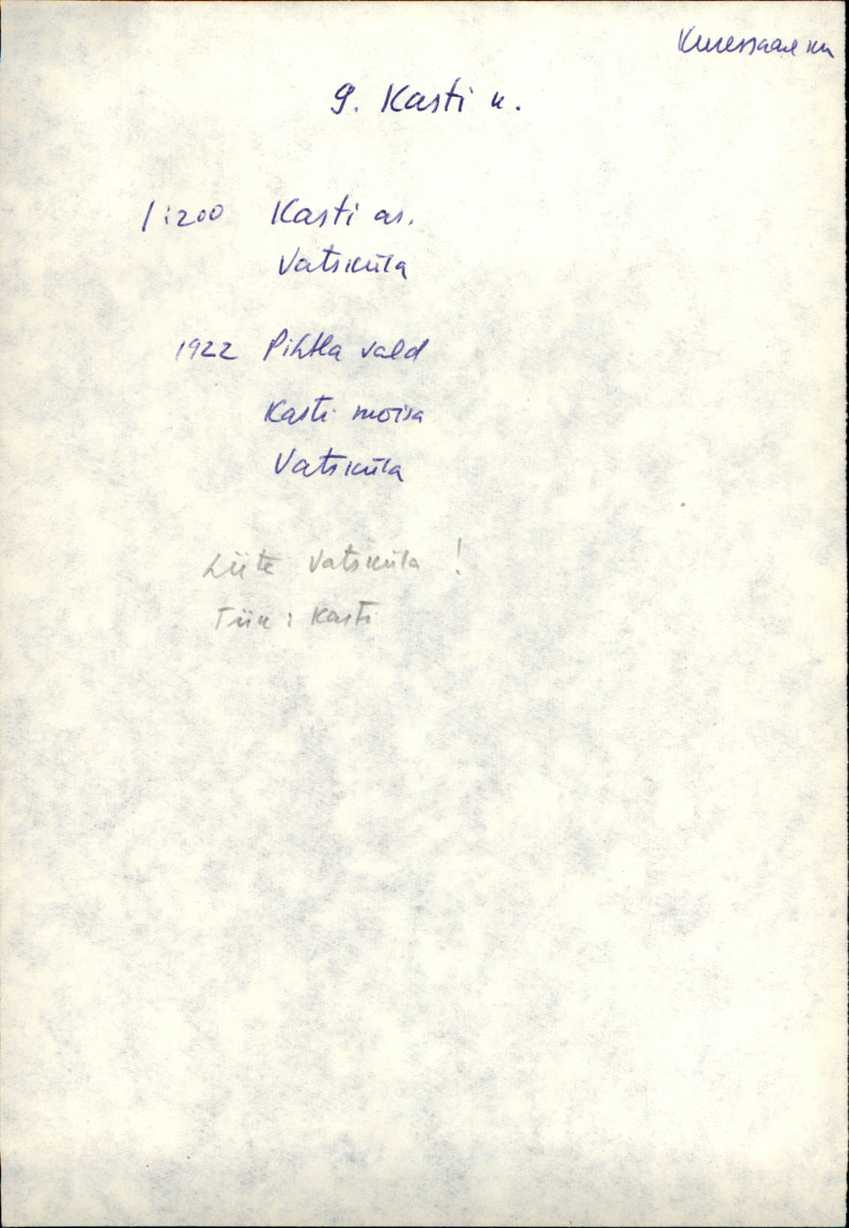 Kuressaare kn
9. Kasti k.
1:200 Kasti as.
Vatsküla
1922 Pihtla vald
Kasti mõisa
Vatsküla
Liite Vatsküla !
Tiik : Kasti